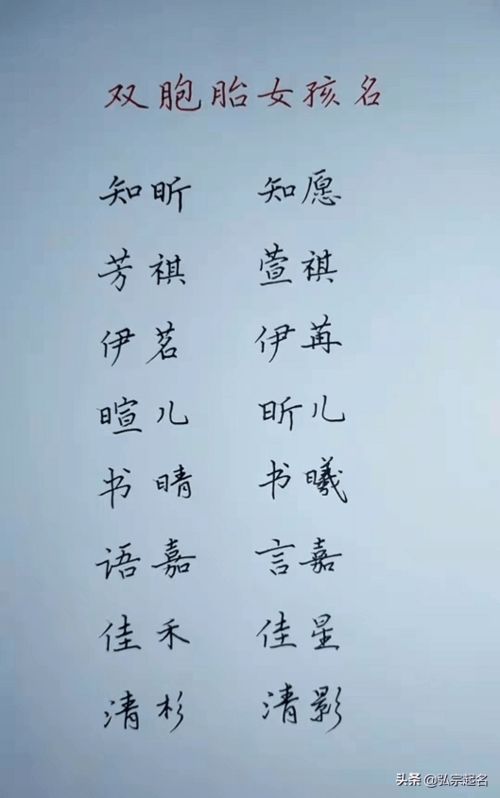 双胞胎女孩名
知昕 知愿
芳祺 萱祺
伊茗 伊苒
暄儿 昕儿
书晴 书曦
语嘉 言嘉
佳禾 佳星
清杉 清影
头条 @弘宗起名